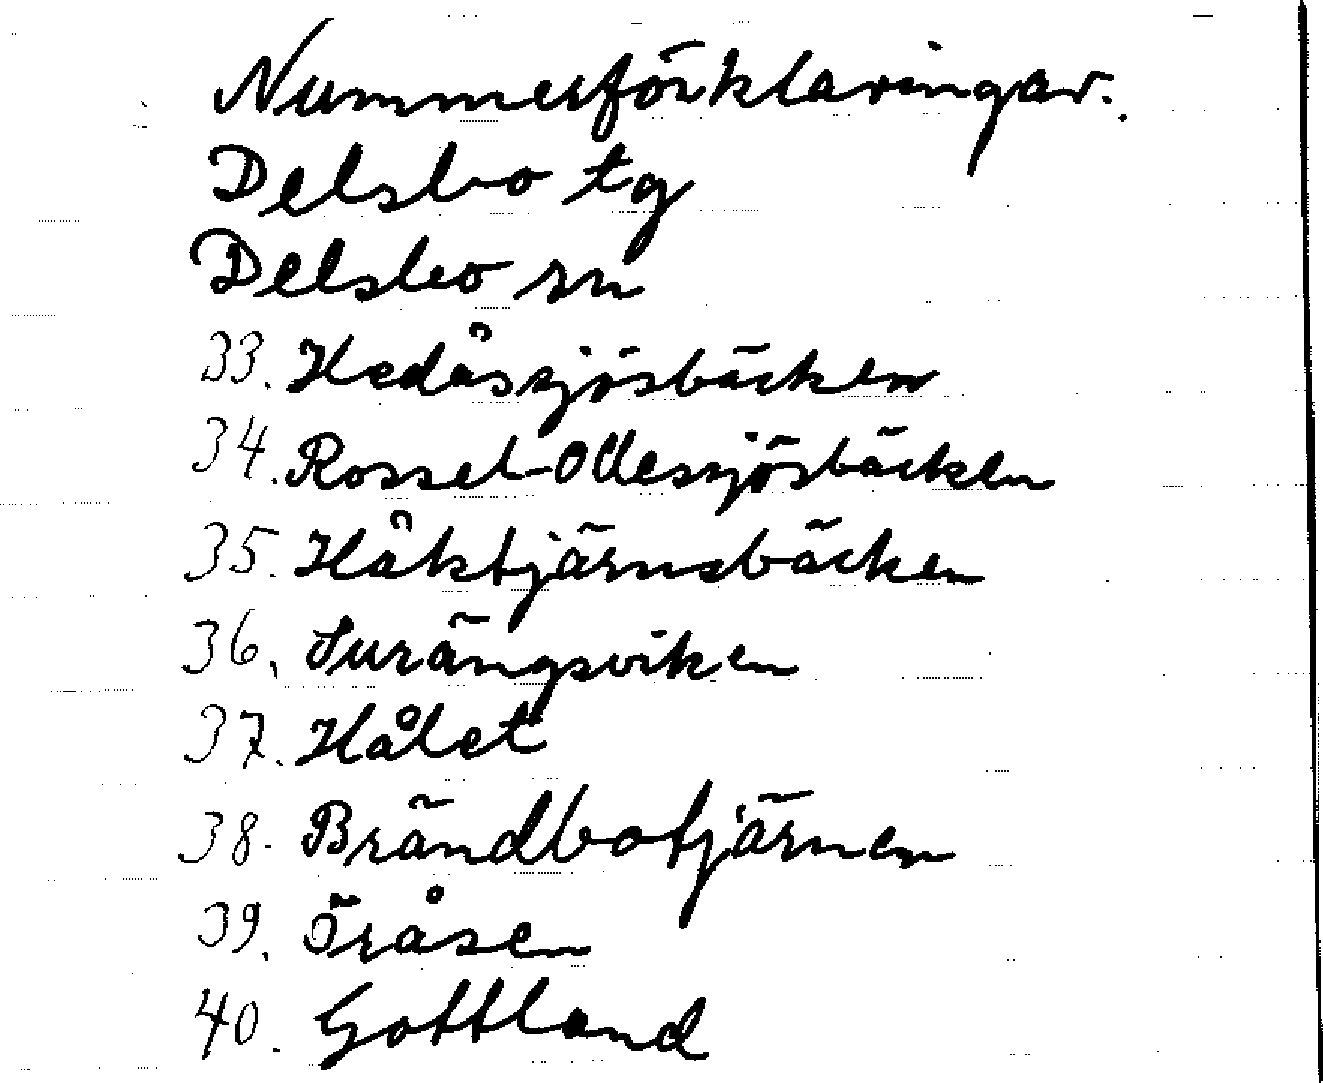 Nummerförklaringar.
Delsbo tg
Delsbo sn
33. Hedåssjösbäcken
34. Rossel-Ollessjösbäcken
35. Håktjärnsbäcken
36. Surängsviken
37. Hålet
38. Brändbotjärnen
39. Öråsen
40. Gottland